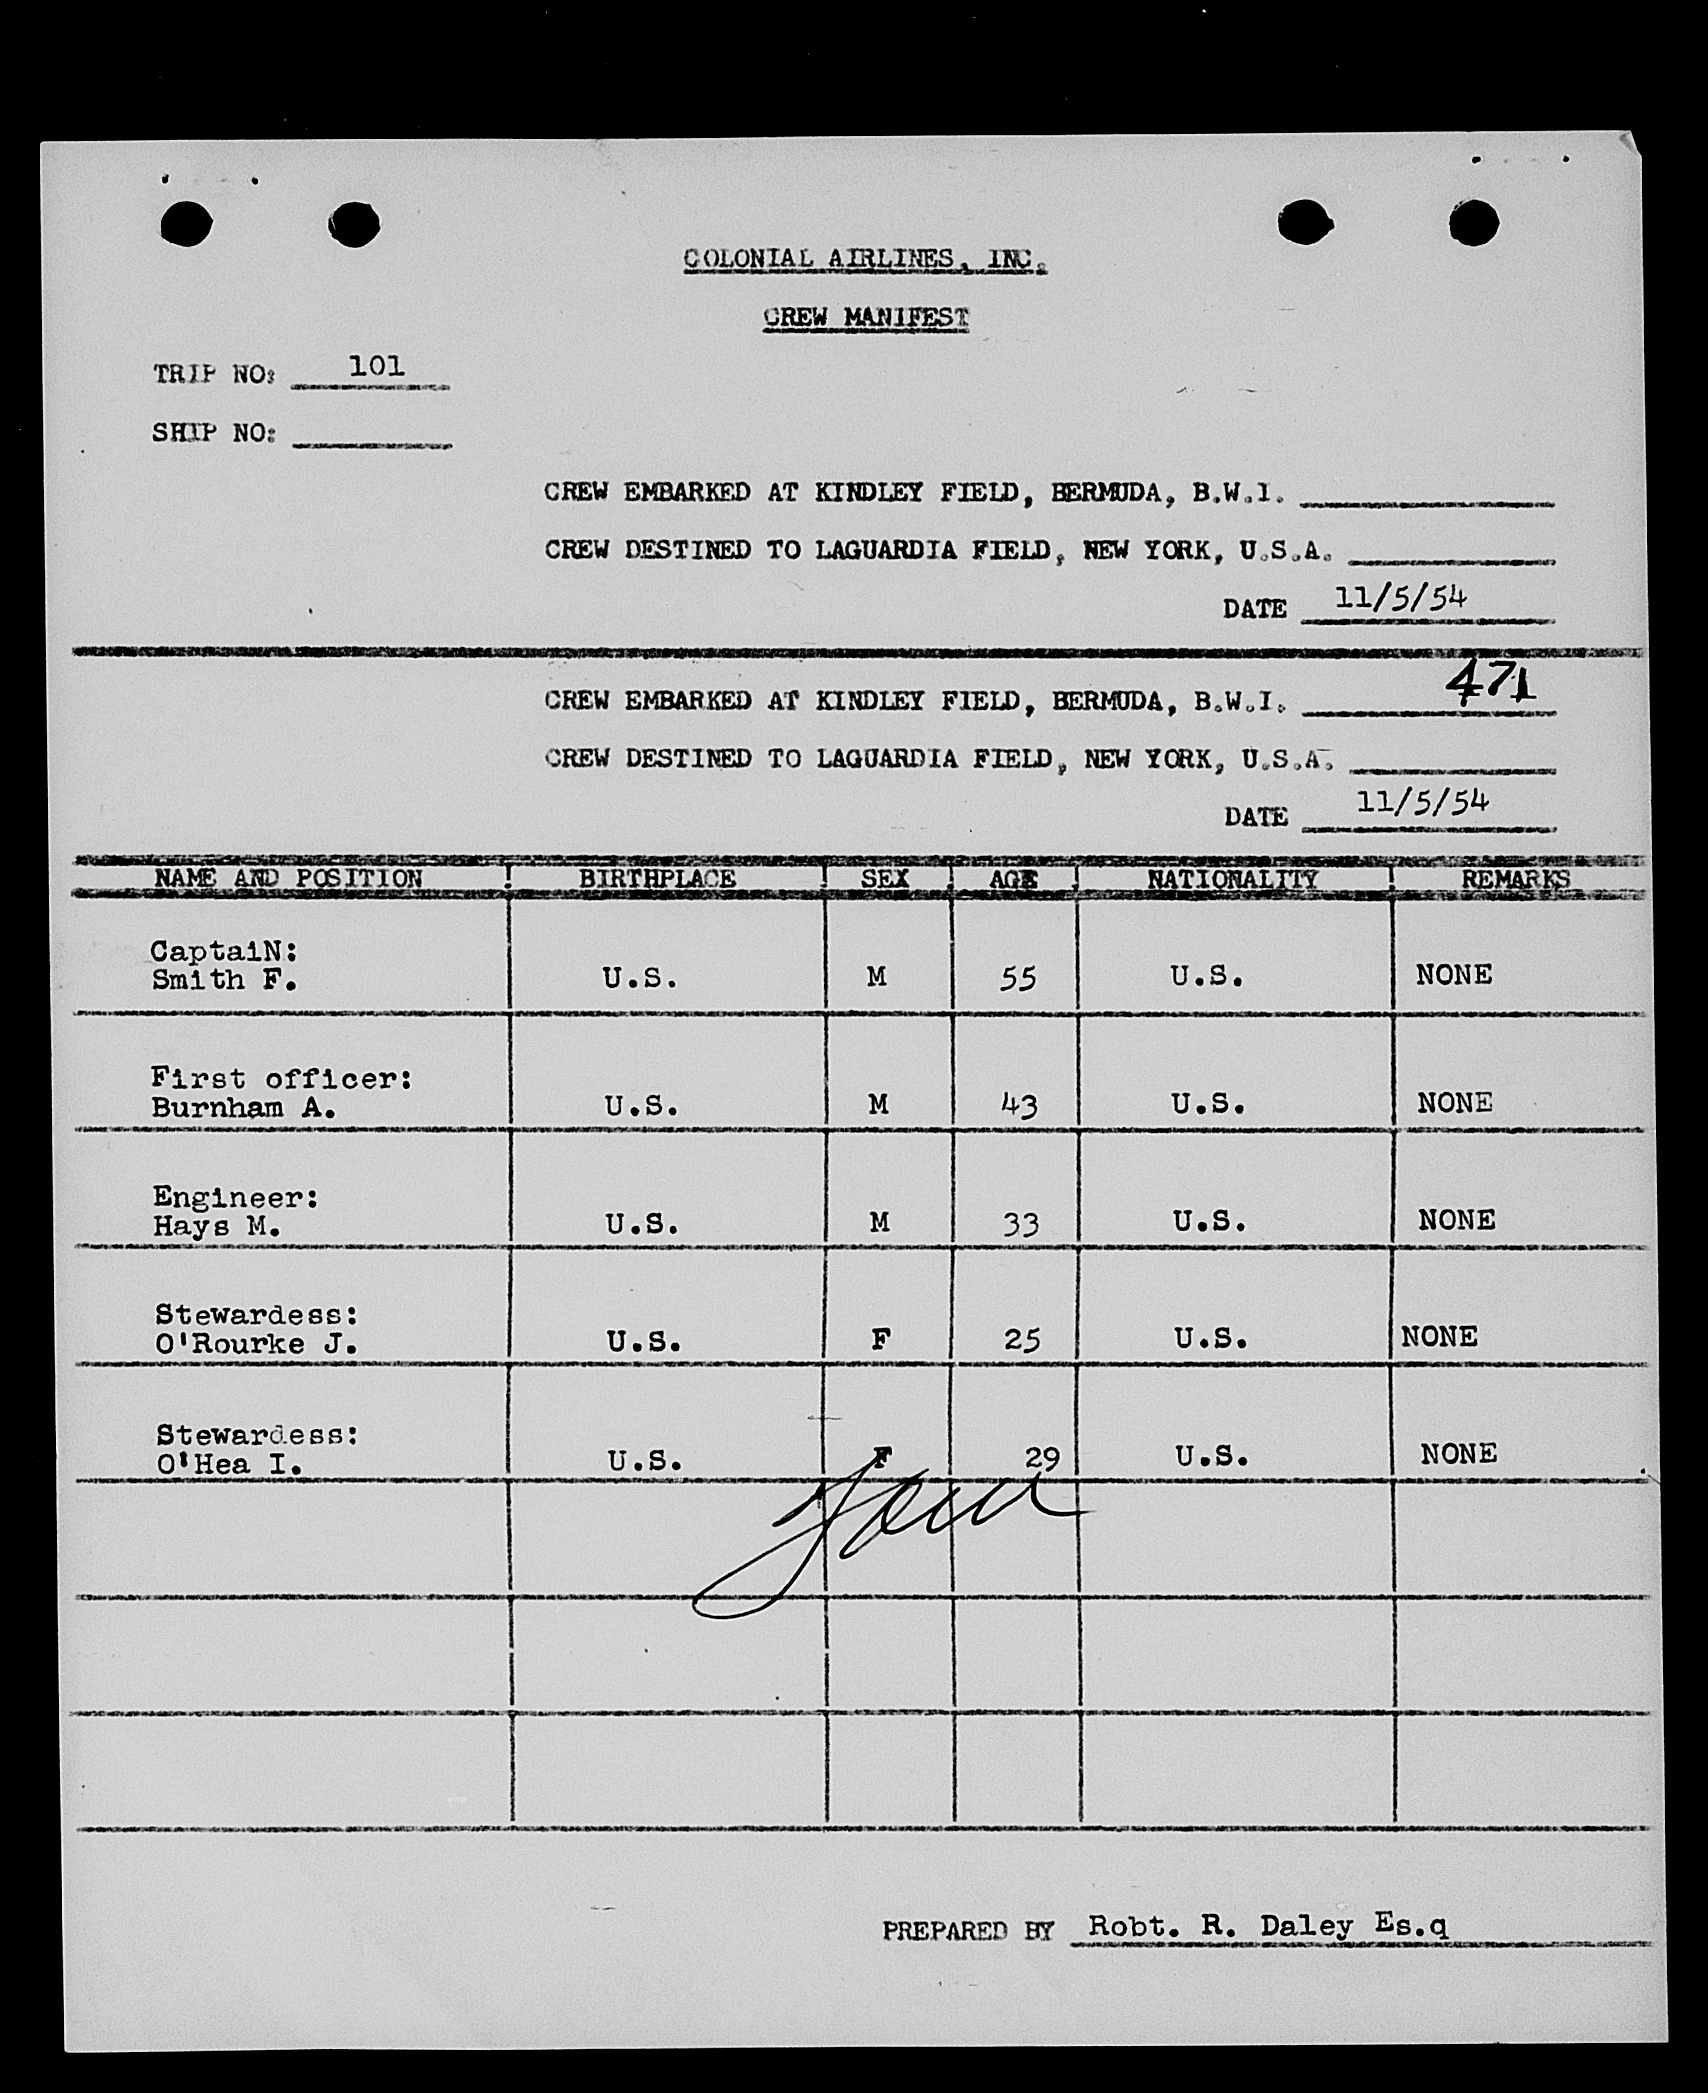 COLONIAL AIRLINES, INC.
CREW MANIFEST
TRIP NO: 101
SHIP NO:
CREW EMBARKED AT KINDLEY FIELD, BERMUDA, B.W.I.
CREW DESTINED TO LAGUARDIA FIELD, NEW YORK, U.S.A.
DATE 11/5/54
471
CREW EMBARKED AT KINDLEY FIELD, BERMUDA, B.W.I.
CREW DESTINED TO LAGUARDIA FIELD, NEW YORK, U.S.A.
DATE 11/5/54
NAME AND POSITION ! BIRTHPLACE ! SEX ! AGE ! NATIONALITY ! REMARKS
CaptaiN:
Smith F. U.S. M 55 U.S. NONE
First officer:
Burnham A. U.S. M 43 U.S. NONE
Engineer:
Hays M. U.S. M 33 U.S. NONE
Stewardess:
O'Rourke J. U.S. F 25 U.S. NONE
Stewardess:
O'Hea I. U.S. F 29 U.S. NONE
PREPARED BY Robt. R. Daley Es.q